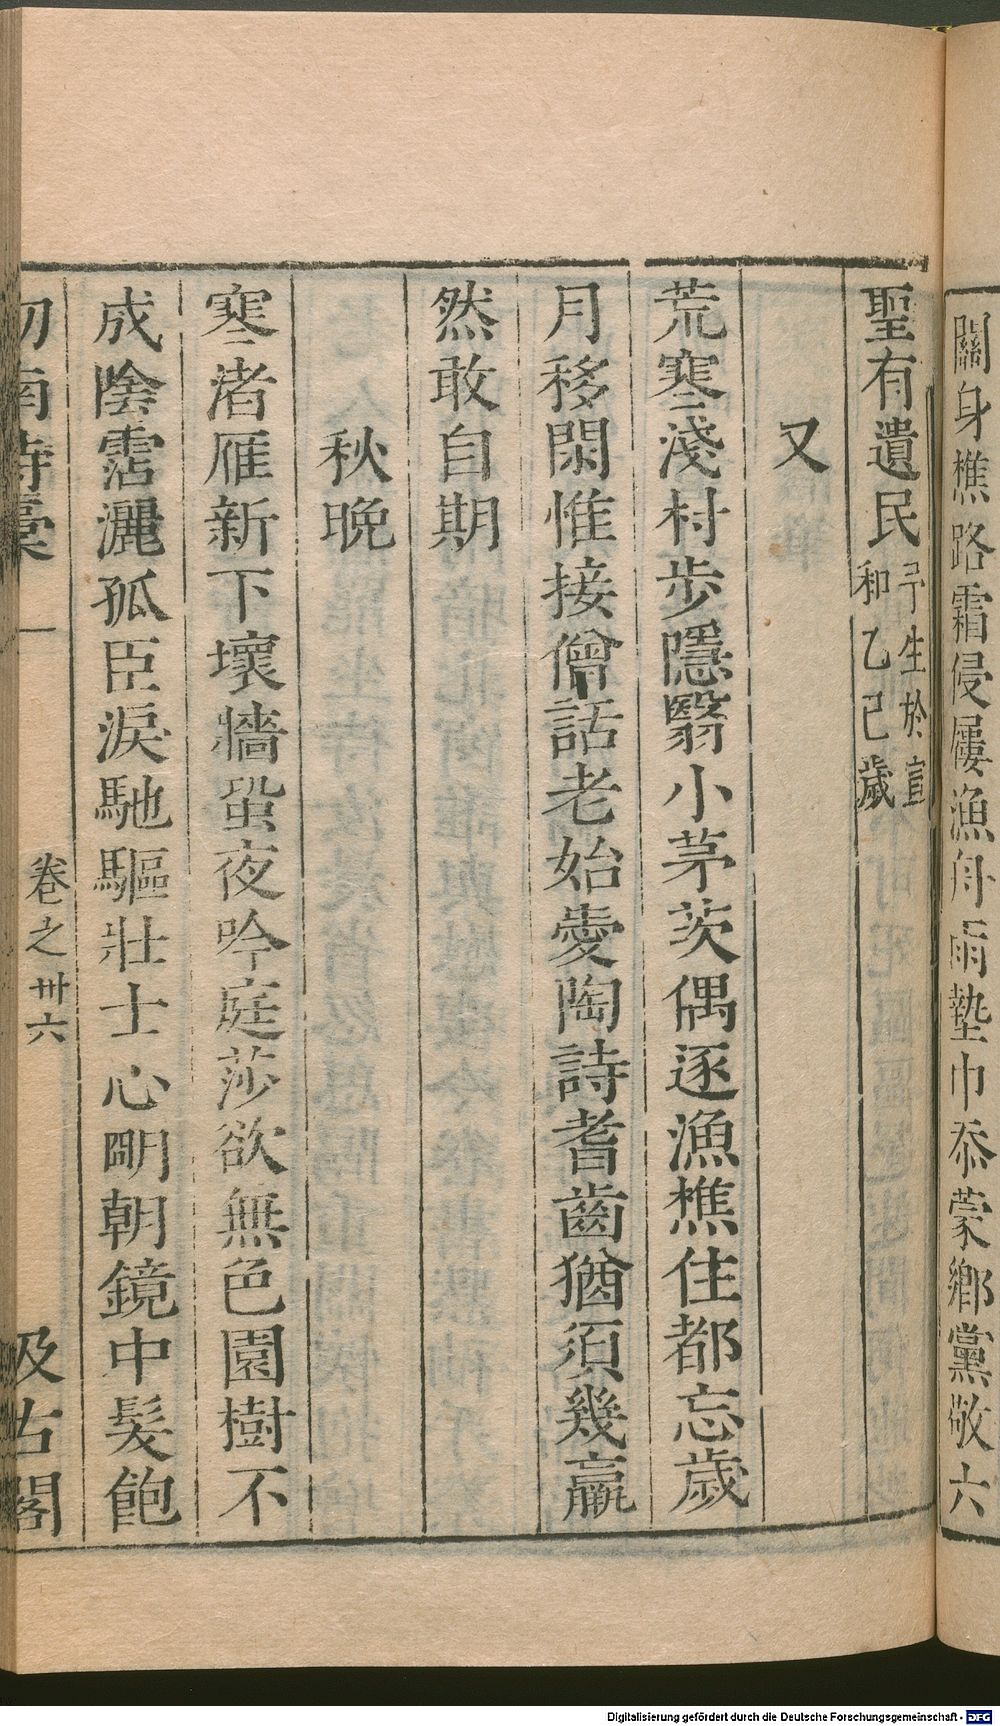 關身樵路霜侵屨漁舟雨墊巾忝蒙鄉黨敬六
聖有遺民
予生於宣
和乙巳歲
又
荒寒淺村步隱翳小茅茨偶逐漁樵住都忘歲
月移閑惟接僧話老始愛陶詩耆齒猶須幾羸
然敢自期
秋晚
寒渚雁新下壞牆蛩夜吟庭莎欲無色園樹不
成陰霑灑孤臣淚馳驅壯士心明朝鏡中髮飽
劍南詩稾 一 卷之卅六 汲古閣
Digitalisierung gefördert durch die Deutsche Forschungsgemeinschaft - DFG